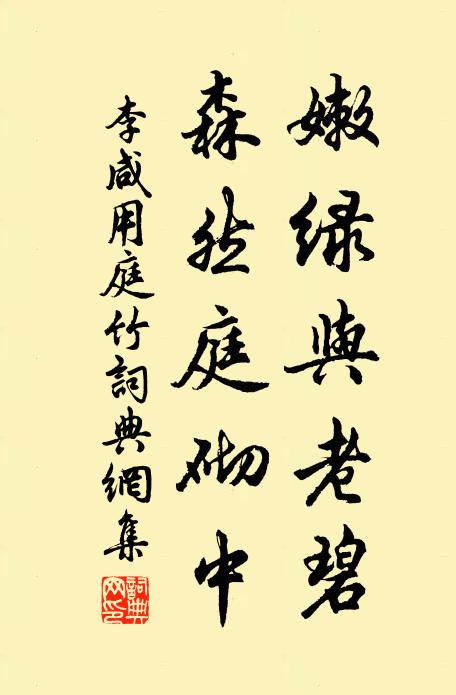 嫩緑與老碧
森然庭砌中
李咸用庭竹詞典網集
詞典網印